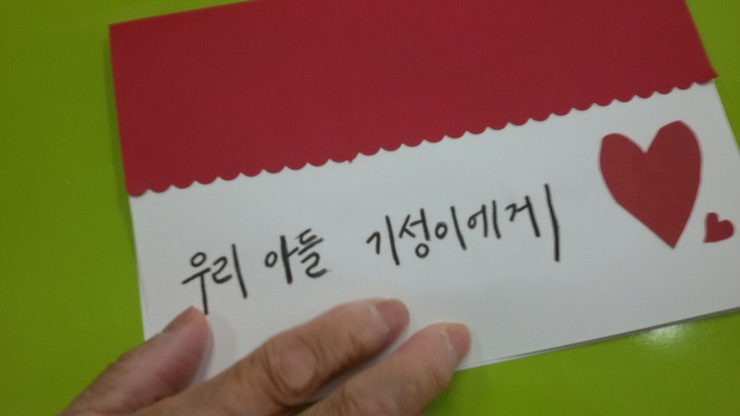 우리 아들 기성이에게